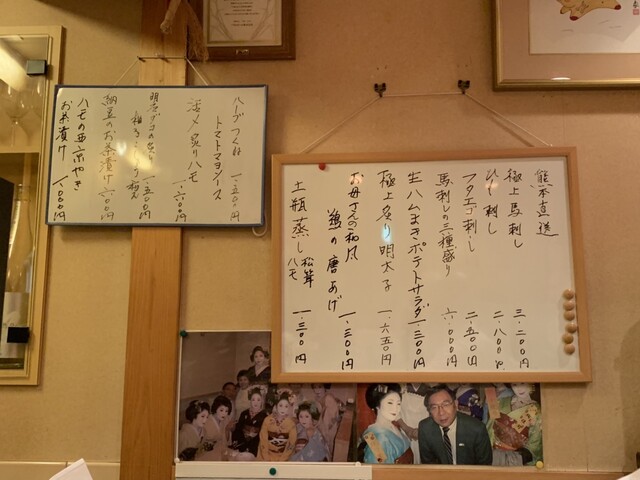 熊本直送
極上馬刺し 三.二〇〇円
ヒレ刺し 二.八〇〇円
フタエゴ刺し 二.五〇〇円
馬刺しの三種盛り 六.〇〇〇円
生ハムまきポテトサラダ 一.三〇〇円
極上炙り明太子 一.六五〇円
お母さんの和風
鶏の唐あげ 一.三〇〇円
土瓶蒸し 松茸 ハモ 一.三〇〇円
ハーブつくね 一.五〇〇円
トマトマヨソース
活〆炙りハモ 一.六〇〇円
一.五〇〇円
納豆のお茶漬け 六〇〇円
ハモの西京やき
お茶漬け 一.〇〇〇円